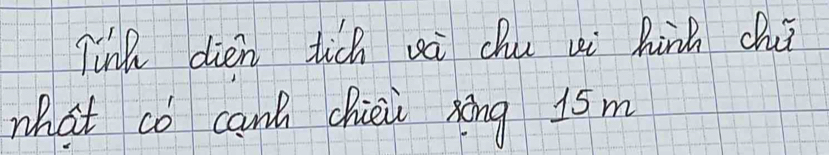 Tính diện tích và chu vi hình chữ
nhật có cạnh chiều rộng 15 m